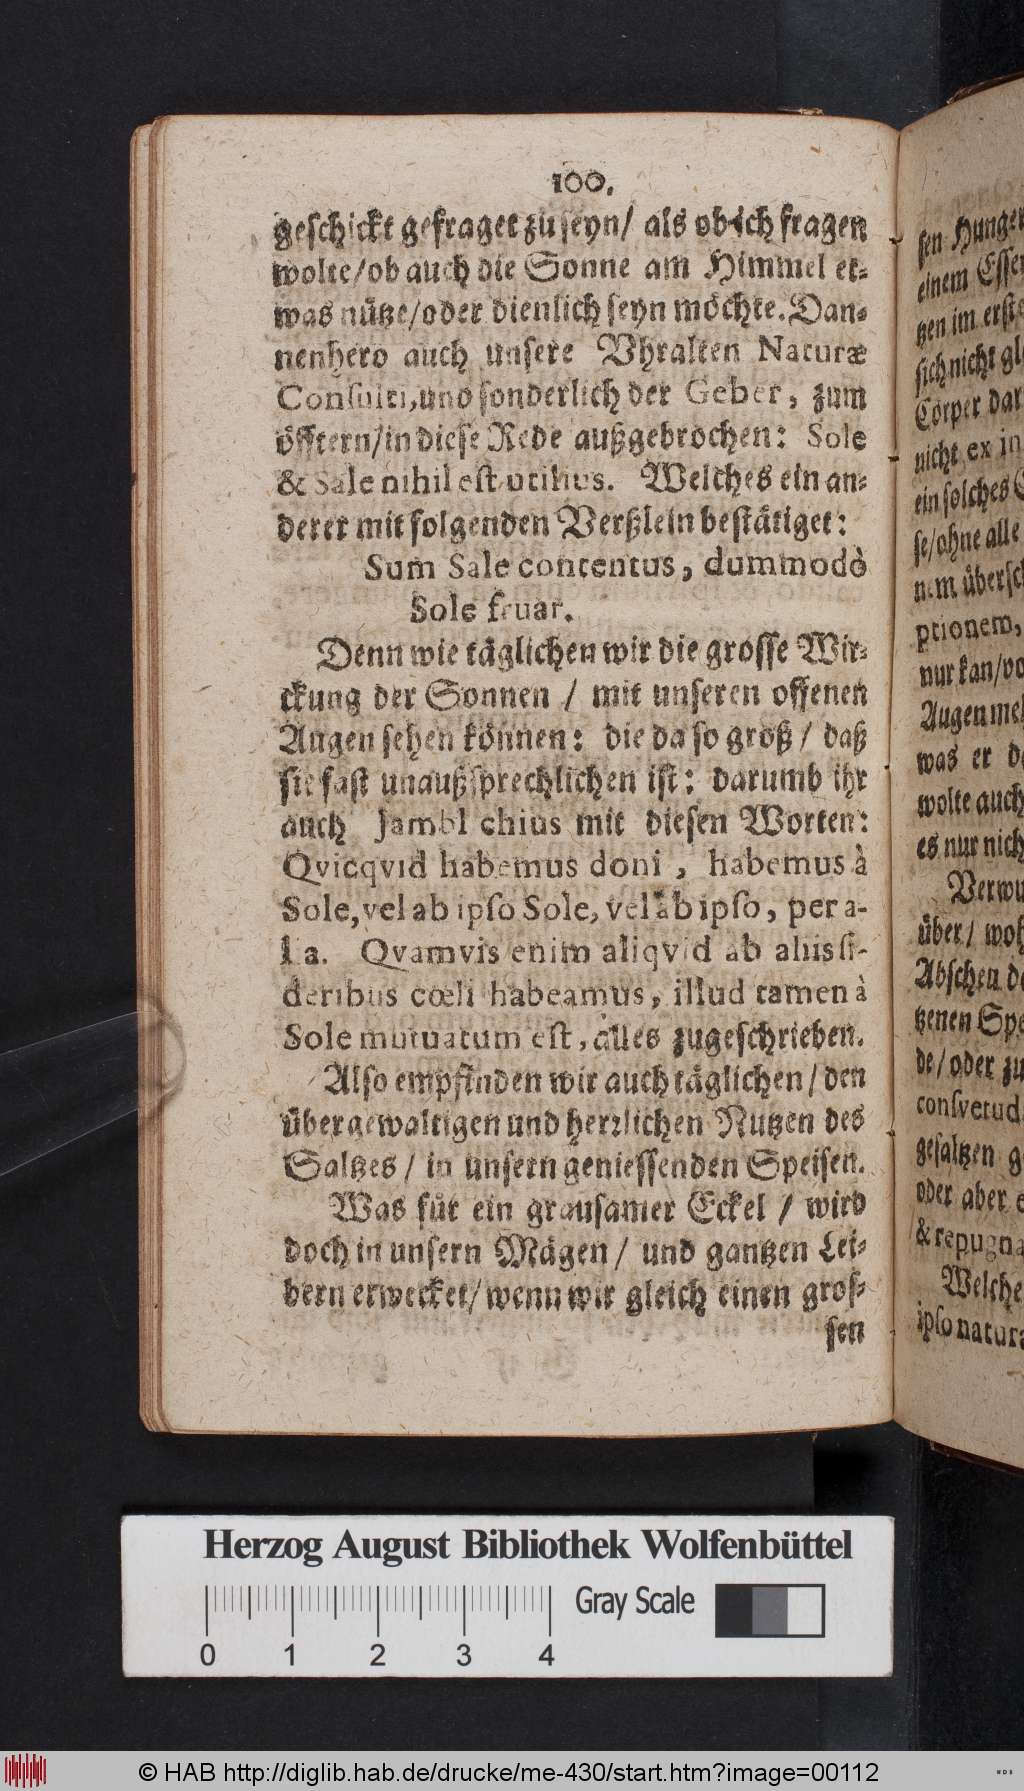 100.
geschickt gefraget zu seyn/ als ob ich fragen
wolte/ob auch die Sonne am Himmel et-
was nütze/oder dienlich seyn möchte. Dan-
nenhero auch unsere Vhralten Naturæ
Consulti, und sonderlich der Geber, zum
öfftern/in diese Rede außgebrochen: Sole
& Sale nihil est utilius. Welches ein an-
derer mit folgenden Verßlein bestätiget:
Sum Sale contentus, dummodò
Sole fruar.
Denn wie täglichen wir die grosse Wir-
ckung der Sonnen / mit unseren offenen
Augen sehen können: die da so groß / daß
sie fast unaußsprechlichen ist: darumb ihr
auch Jambl chius mit diesen Worten:
Qvicqvid habemus doni, habemus à
Sole, vel ab ipso Sole, vel ab ipso, per a-
lia. Qvamvis enim aliqvid ab aliis si-
deribus cœli habeamus, illud tamen à
Sole mutuatum est, alles zugeschrieben.
Also empfinden wir auch täglichen / den
übergewaltigen und herrlichen Nutzen des
Saltzes / in unsern geniessenden Speisen.
Was für ein grausamer Eckel / wird
doch in unsern Mägen / und gantzen Lei-
bern erwecket/ wenn wir gleich einen gros-
sen
sen Hunger
einem Essen
tzen im
sich nicht
Cörper dar
nicht ex in
ein solches
se/ohne alle
nem
ptionem,
nur kan/
Augen
was er
wolte auch
es nur nich
über / woh
Abscheu
tzenen Spe
de / oder zu
consvetud
gesaltzen g
oder aber e
& repugna
Welche
ipso natura
Herzog August Bibliothek Wolfenbüttel
Gray Scale
0 1 2 3 4
© HAB http://diglib.hab.de/drucke/me-430/start.htm?image=00112